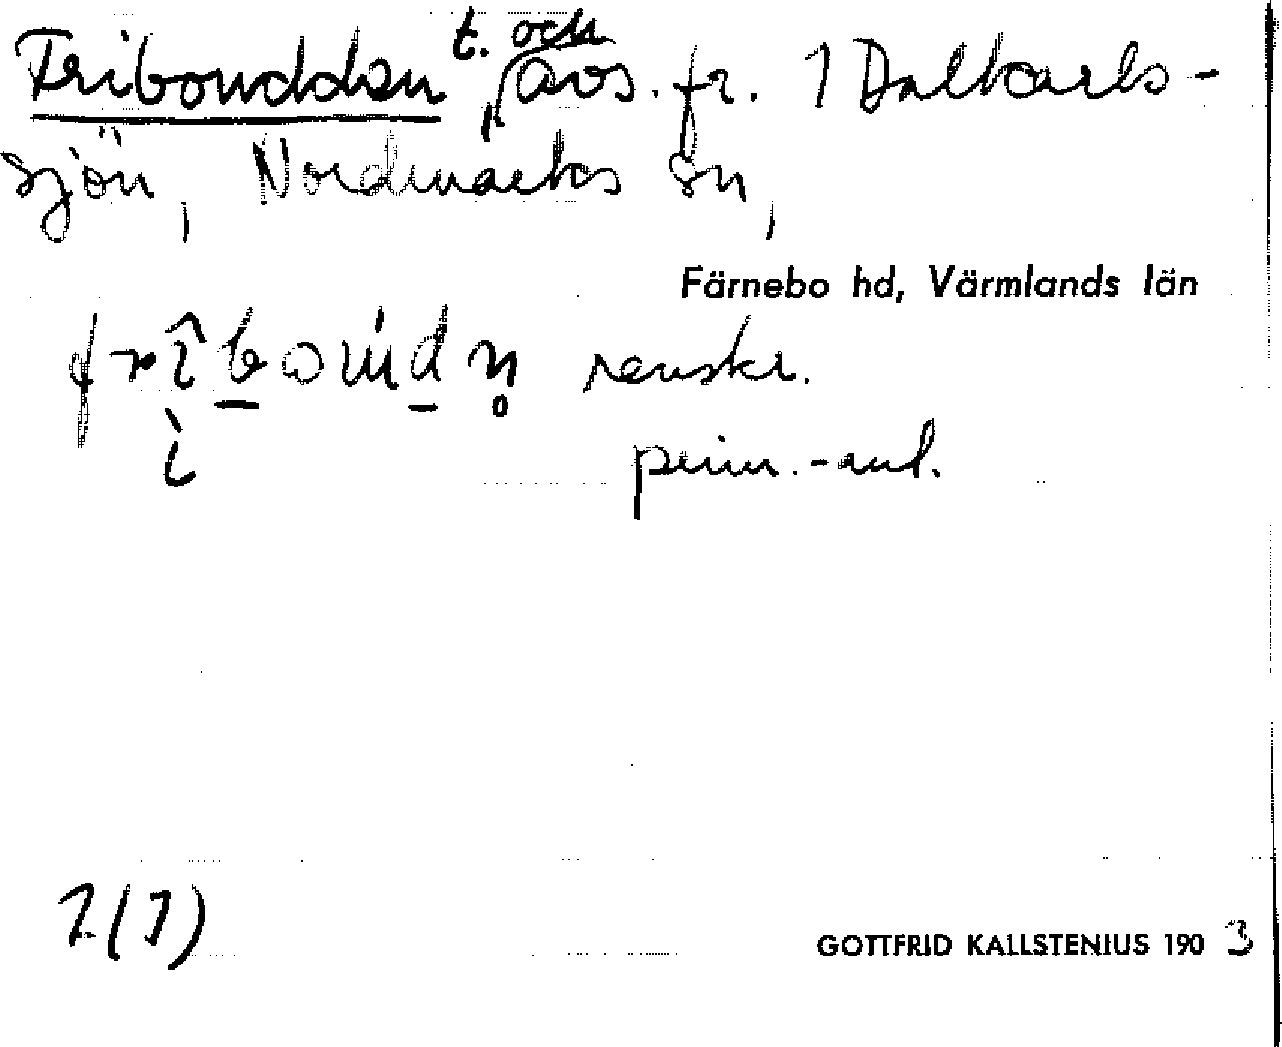 Fribouddan t. och avs. fr. 1 Dalkarls-
sjön, Nordmarks sn,
Färnebo hd, Värmlands län
renskr.
prim.-uml.
1(1)
GOTTFRID KALLSTENIUS 1903